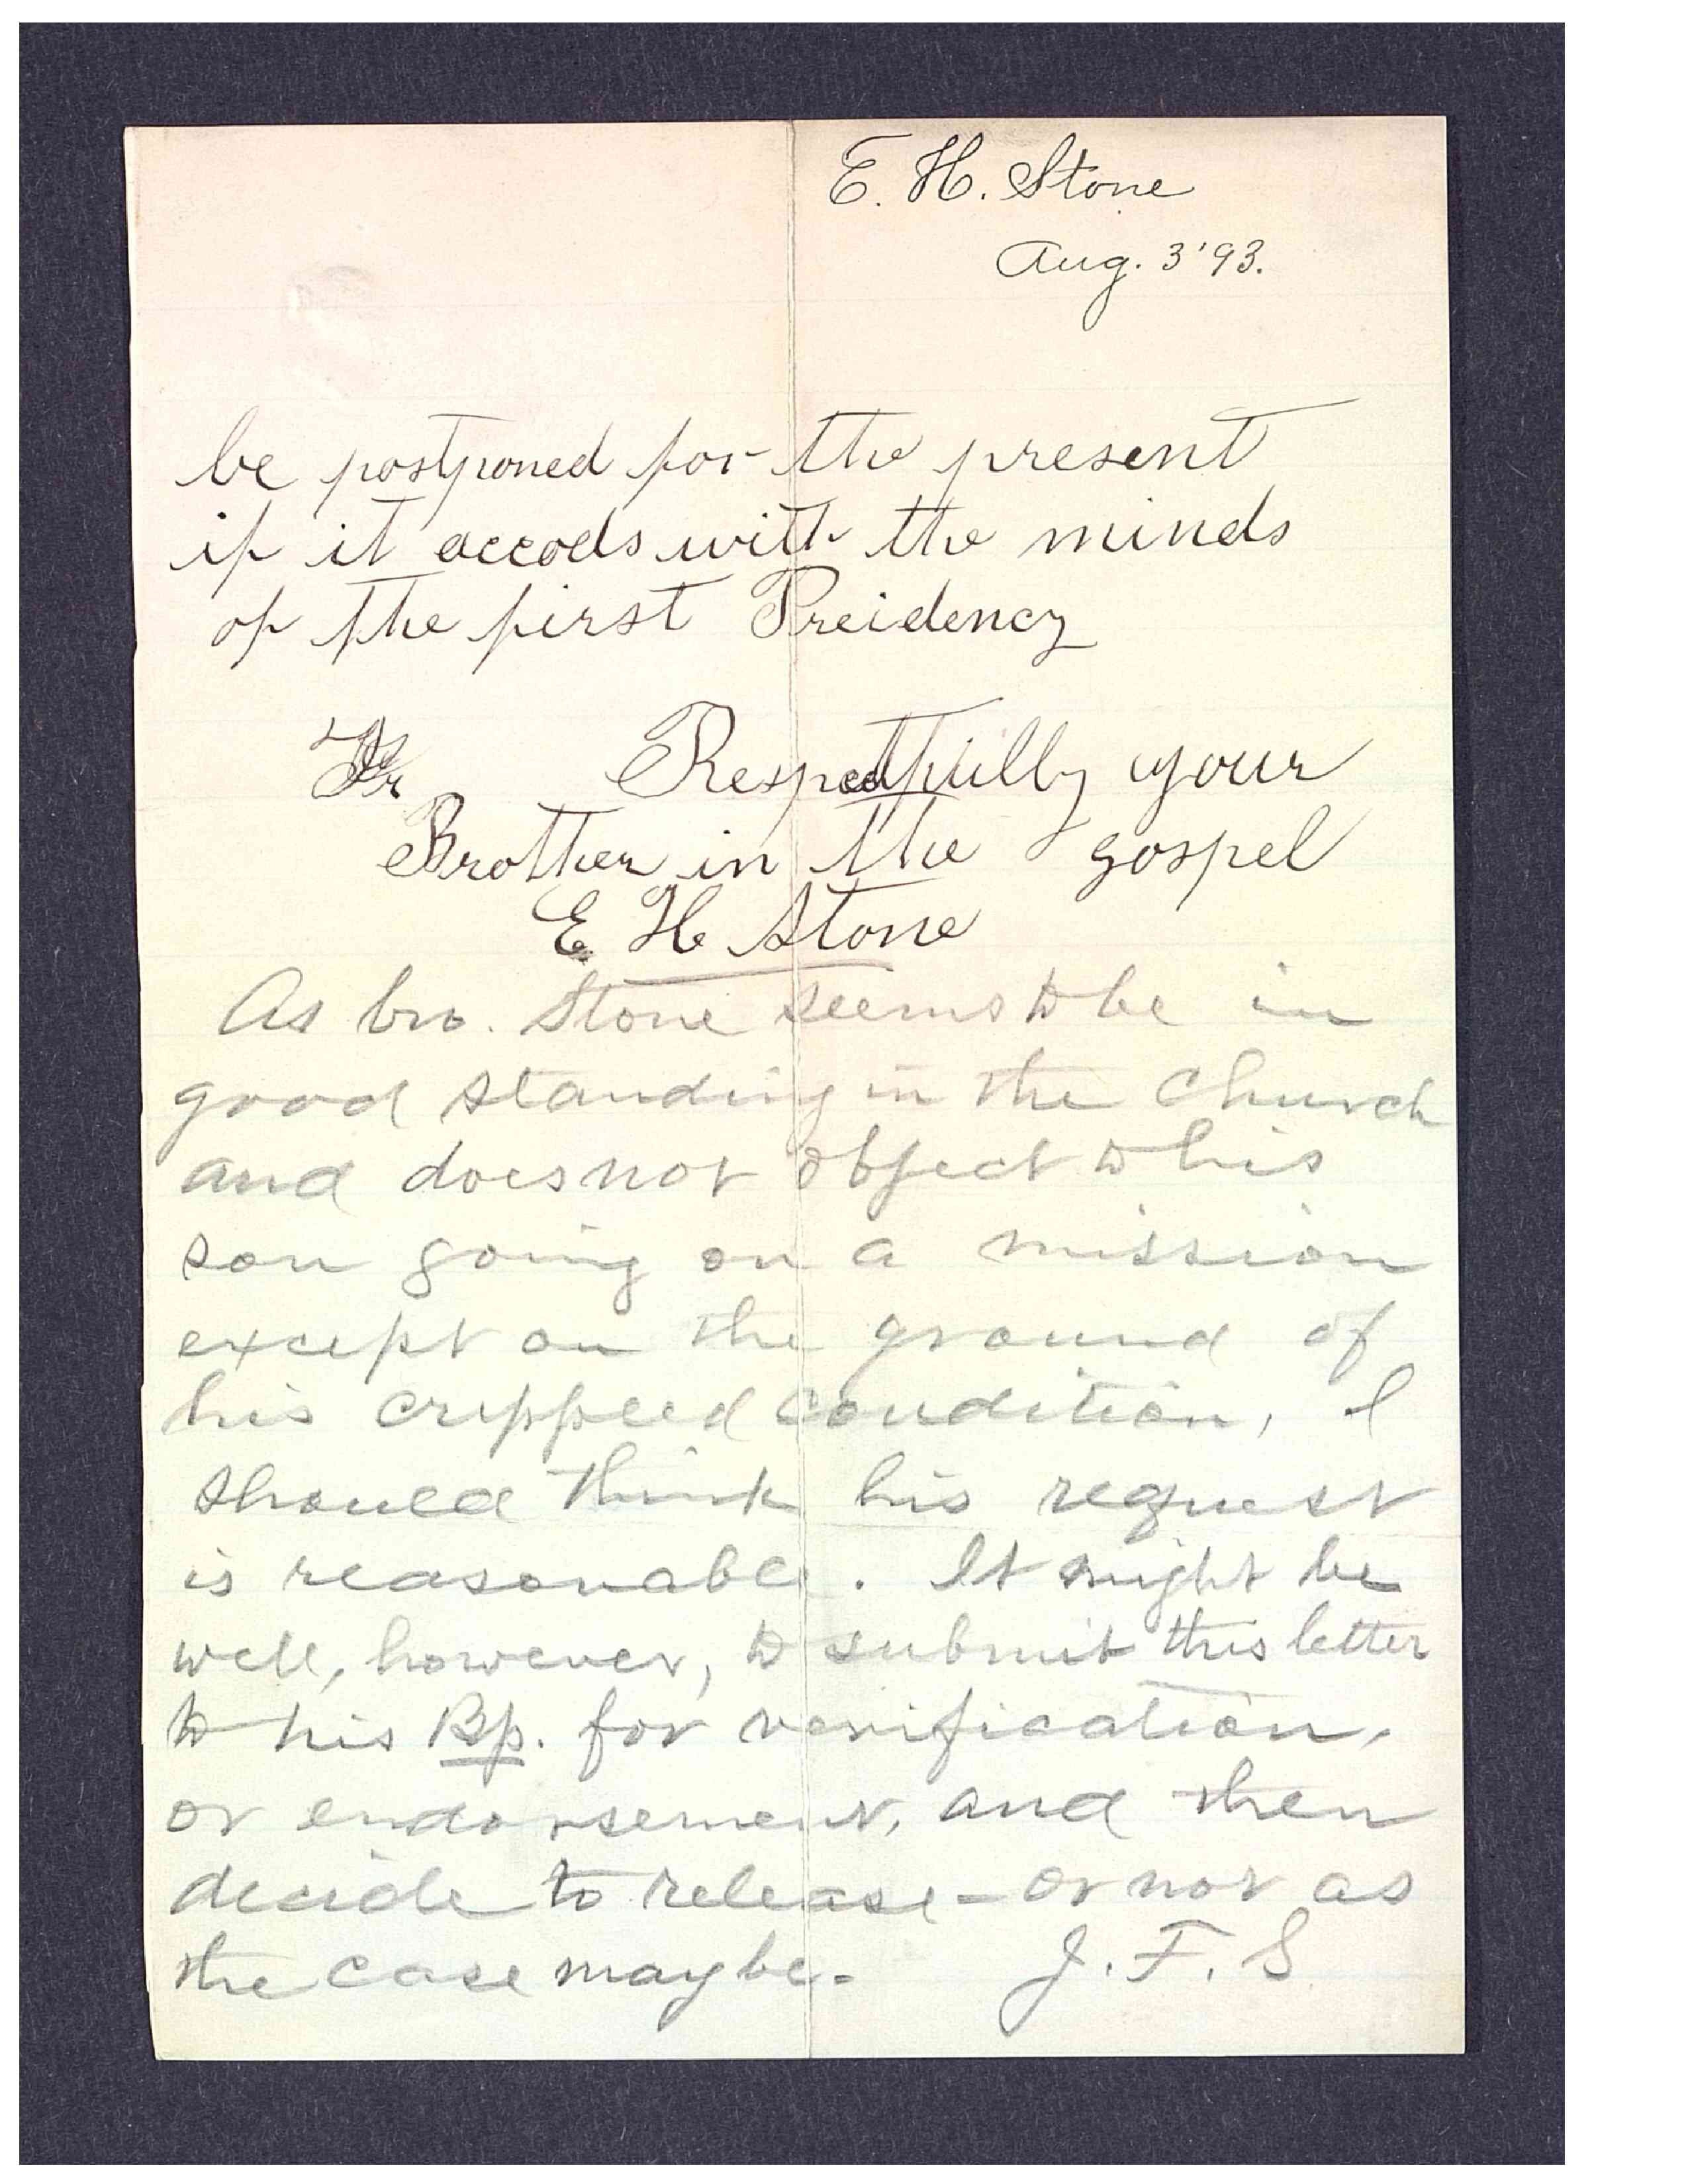 E. H. Stone
Aug. 3 '93.
be postponed for the present
if it accods with the minds
of the first Preidency
Respectfully your
Brother in the gospel
E H Stone
As bro. Stone seems to be in
good standing in the Church
and does not object to his
son going on a mission
except on the ground of
his crippled condition, I
should think his request
is reasonable. It might be
well, however, to submit this letter
to his Bp. for verification,
or endorsement, and then
decide to release - or not as
the case may be. J. F. S.